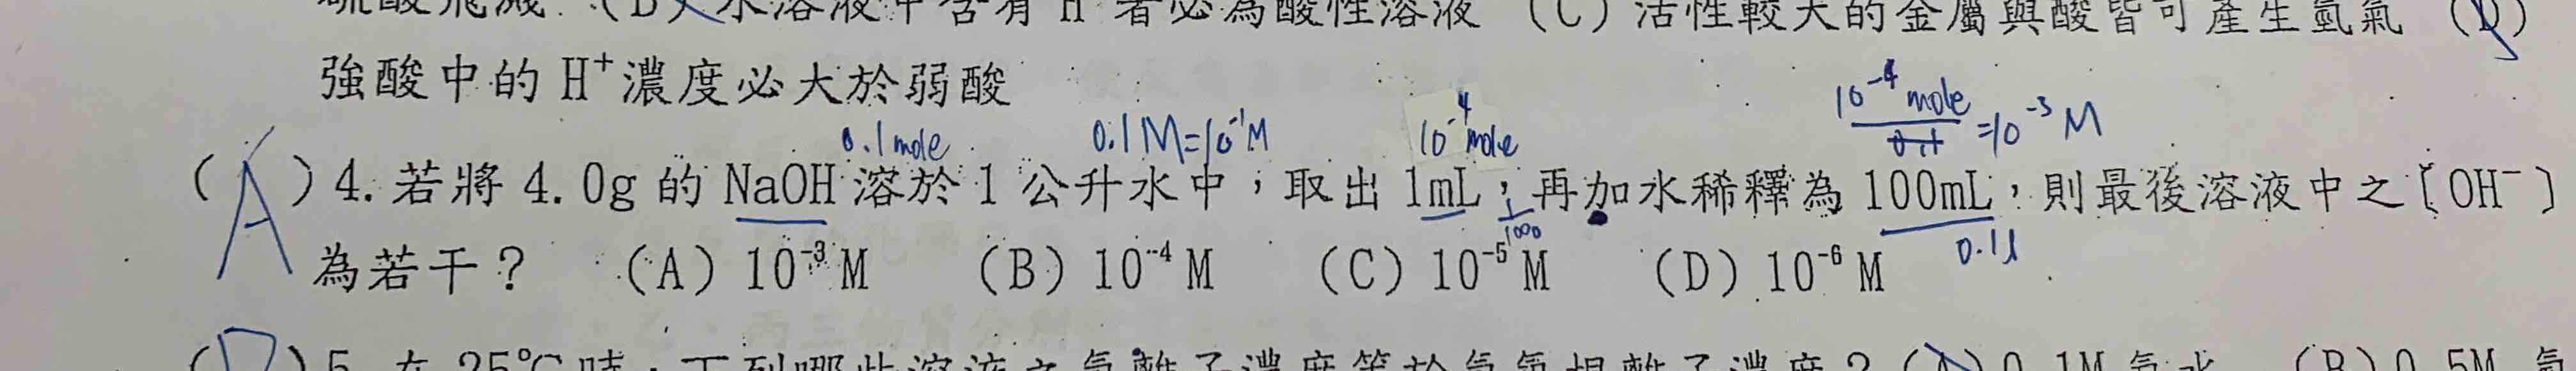 硫酸飛濺 (B) 水溶液中含有 H 者必為酸性溶液 (C) 活性較大的金屬與酸皆可產生氫氣 (D)
強酸中的 H⁺濃度必大於弱酸
10⁻⁴ mole / 0.1 = 10⁻³ M
0.1 mole 0.1M=10⁻¹M 10⁻⁴ mole
(A) 4. 若將 4.0g 的 NaOH 溶於 1 公升水中，取出 1mL，再加水稀釋為 100mL，則最後溶液中之〔OH⁻〕
1/1000 0.1l
為若干？ (A) 10⁻³ M (B) 10⁻⁴ M (C) 10⁻⁵ M (D) 10⁻⁶ M
5. 在 25℃時，下列哪些溶液之氫離子濃度等於氫氧根離子濃度？(A) 0.1M 氨水 (B) 0.5M